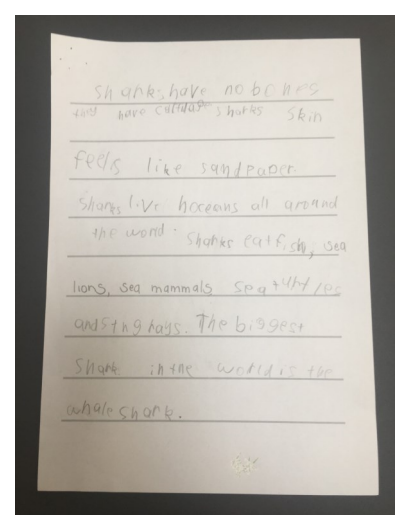 sharks have no bones
they have calidag sharks skin
feels like sandpaper.
Sharks live hoceans all around
the world. Sharks eat fish, sea
lions, sea mammals sea turtles
and sting rays. The biggest
Shark in the world is the
whale shark.